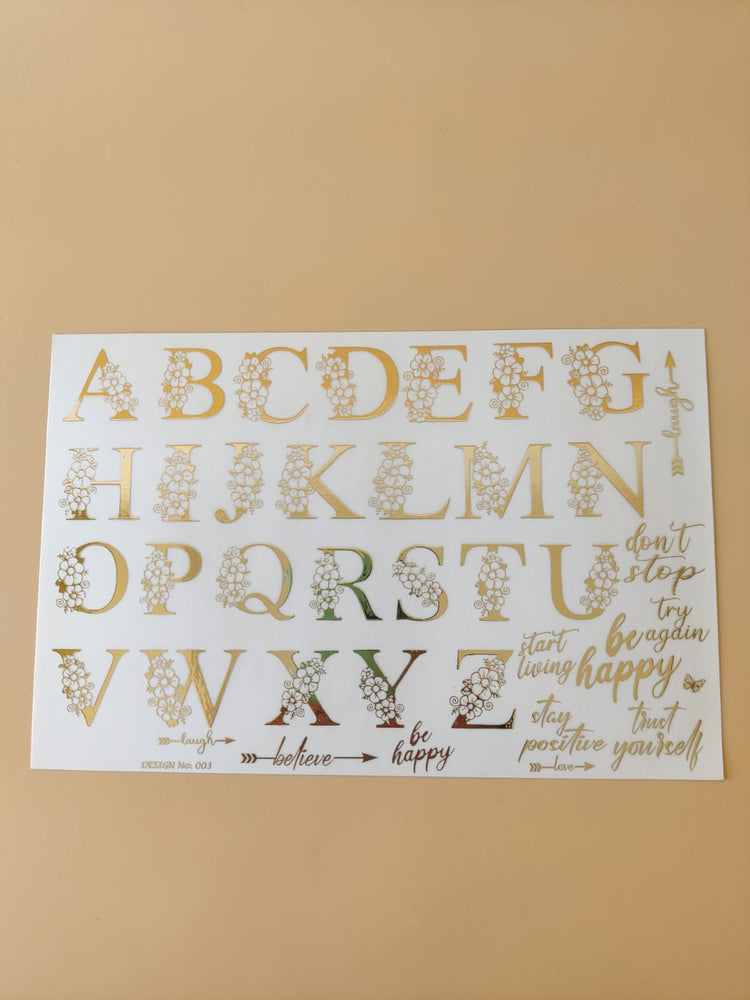 A B C D E F G
laugh
H I J K L M N
O P Q R S T U
don't
stop
try
again
start
living
be
happy
V W X Y Z
stay
positive
trust
yourself
love
laugh
believe
be
happy
DESIGN No: 003